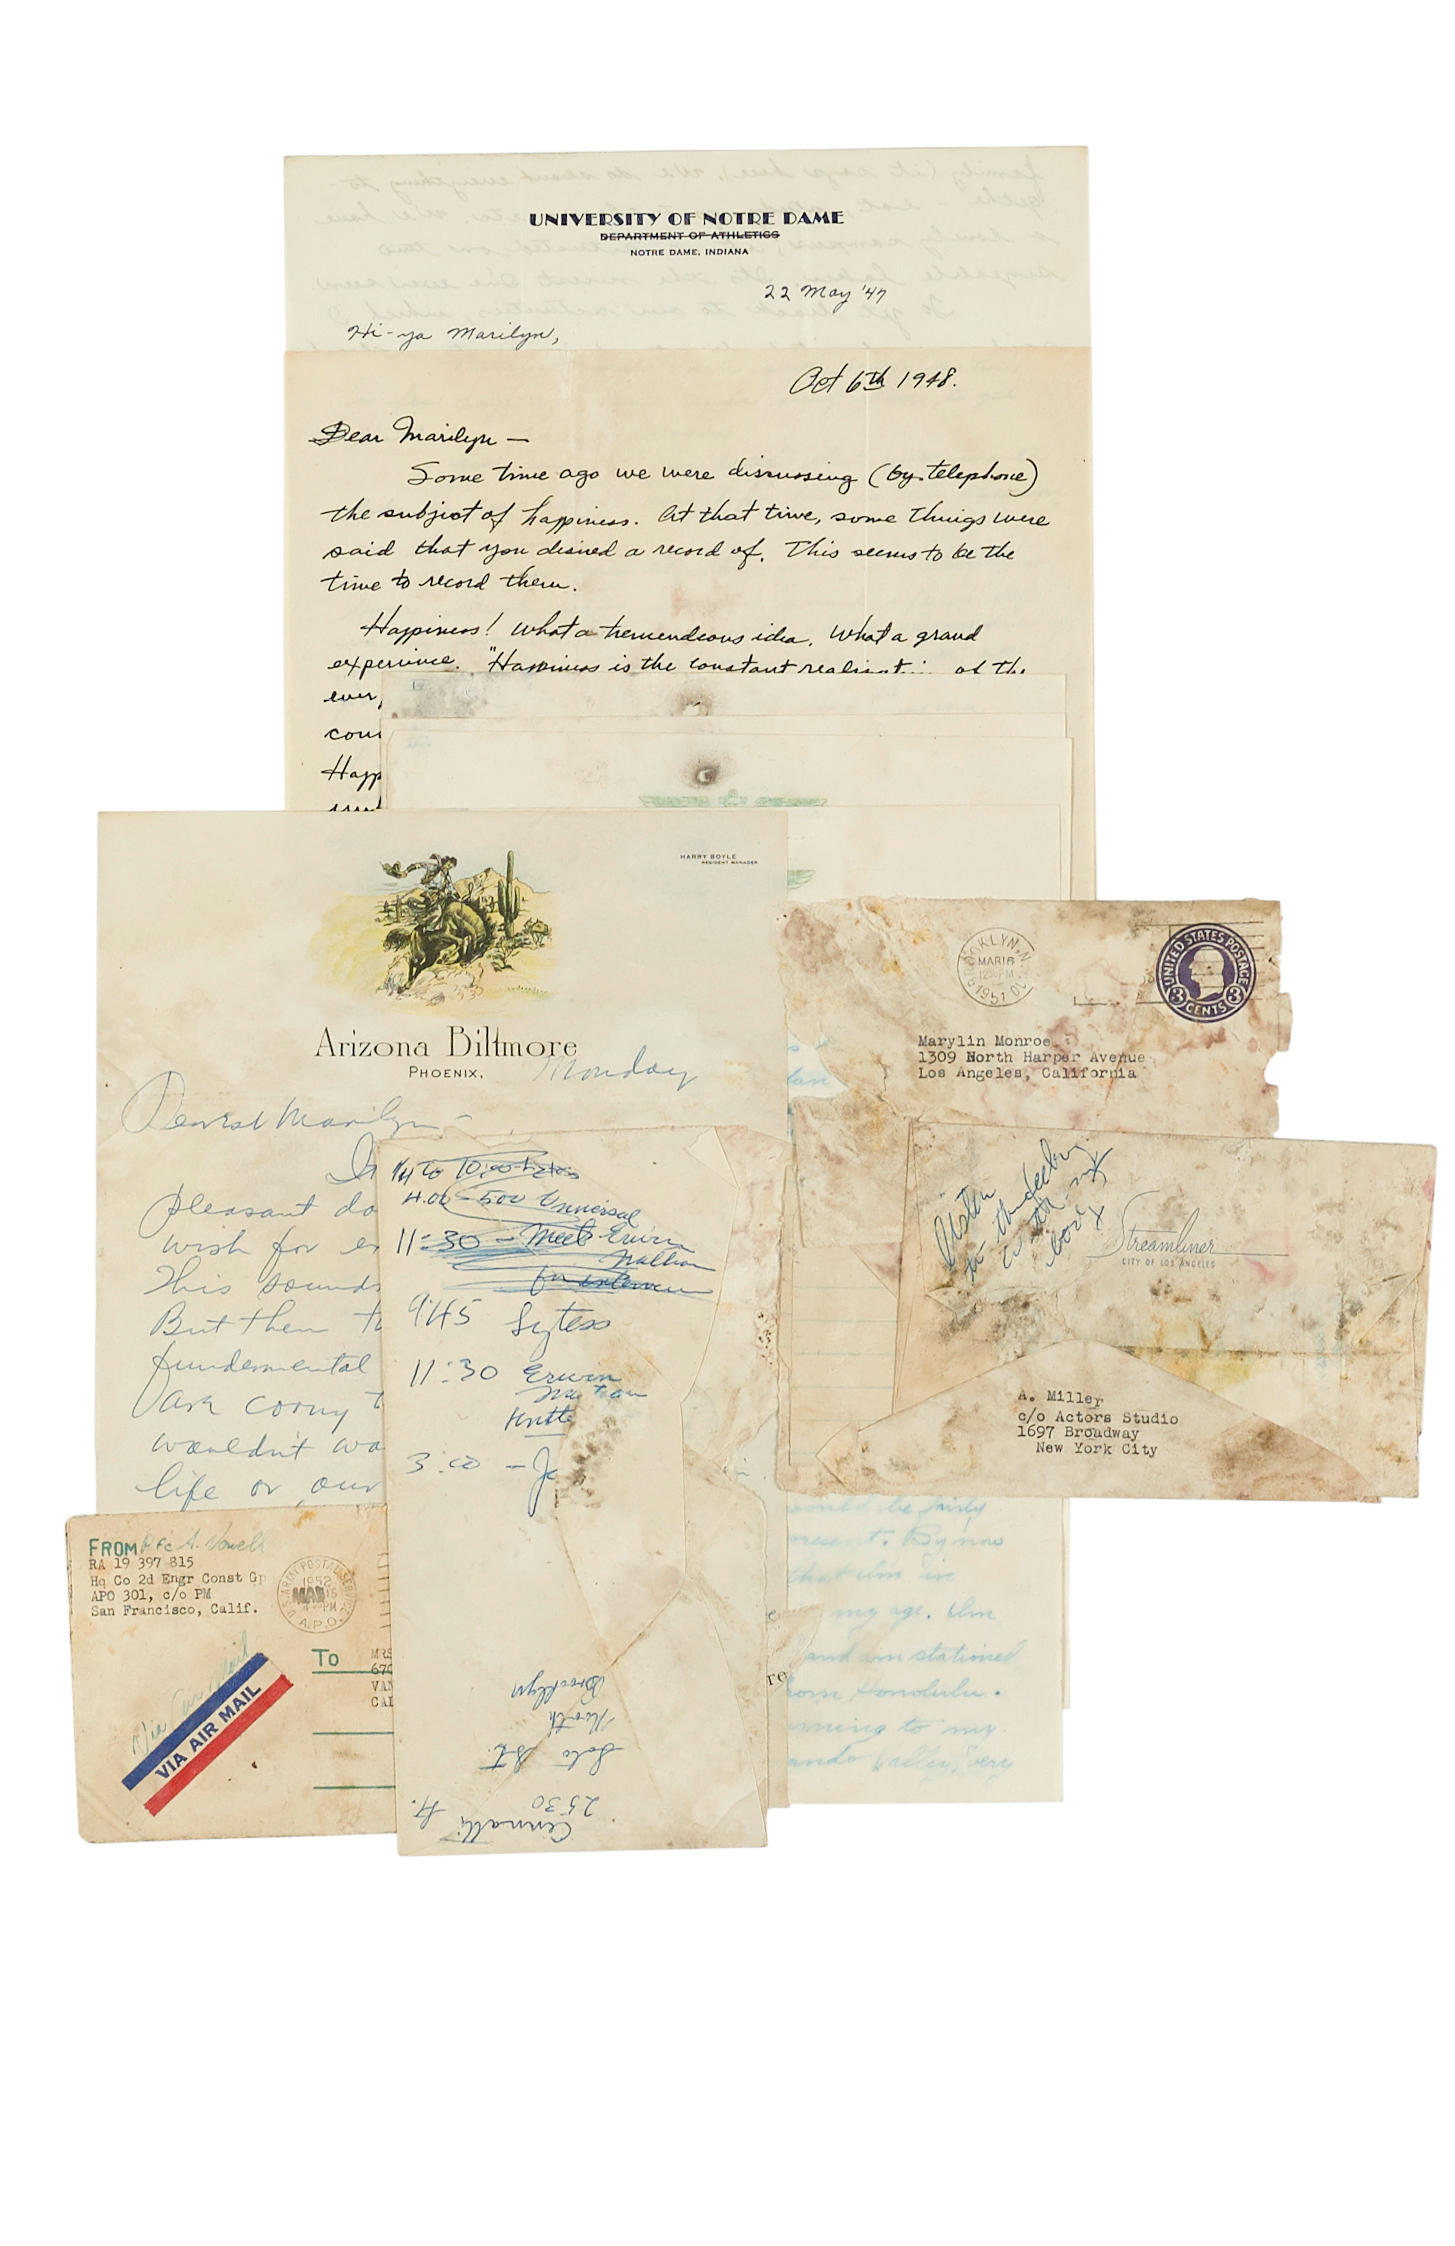 UNIVERSITY OF NOTRE DAME
DEPARTMENT OF ATHLETICS
NOTRE DAME, INDIANA
22 May '47
Hi-ya Marilyn,
Oct 6th 1948.
Dear Marilyn —
Some time ago we were discussing (by telephone)
the subject of happiness. At that time, some things were
said that you desired a record of. This seems to be the
time to record them.
Happiness! What a tremendeous idea. What a grand
experience. "Happiness is the constant of the
HARRY BOYLE
RESIDENT MANAGER
Arizona Biltmore
PHOENIX,
Monday
Dearest Marilyn —
pleasant do
wish for
This sounds
But then
fundermental
ask corny t
wouldn't wa
life or our
BROOKLYN, N.
MAR 16
1951
UNITED STATES POSTAGE
3 CENTS 3
Marylin Monroe
1309 North Harper Avenue
Los Angeles, California
with my
love
Streamliner
CITY OF LOS ANGELES
A. Miller
c/o Actors Studio
1697 Broadway
New York City
4.00 - 500 Universal
11:30 - Meet Erwin
for interview
9:45 Lytess
11:30 Erwin
3:00 -
Brooklyn
North
Solo St.
2530
FROM Pfc A. Vowell
RA 19 397 815
Hq Co 2d Engr Const Gp
APO 301, c/o PM
San Francisco, Calif.
U.S. ARMY POSTAL SERVICE
1952
A.P.O.
To
MRS
670
VAN
CAL
Via Air Mail
VIA AIR MAIL
would be fairly
present. By now
that I'm in
my age. I'm
and am stationed
from Honolulu.
to my
Valley, very
re